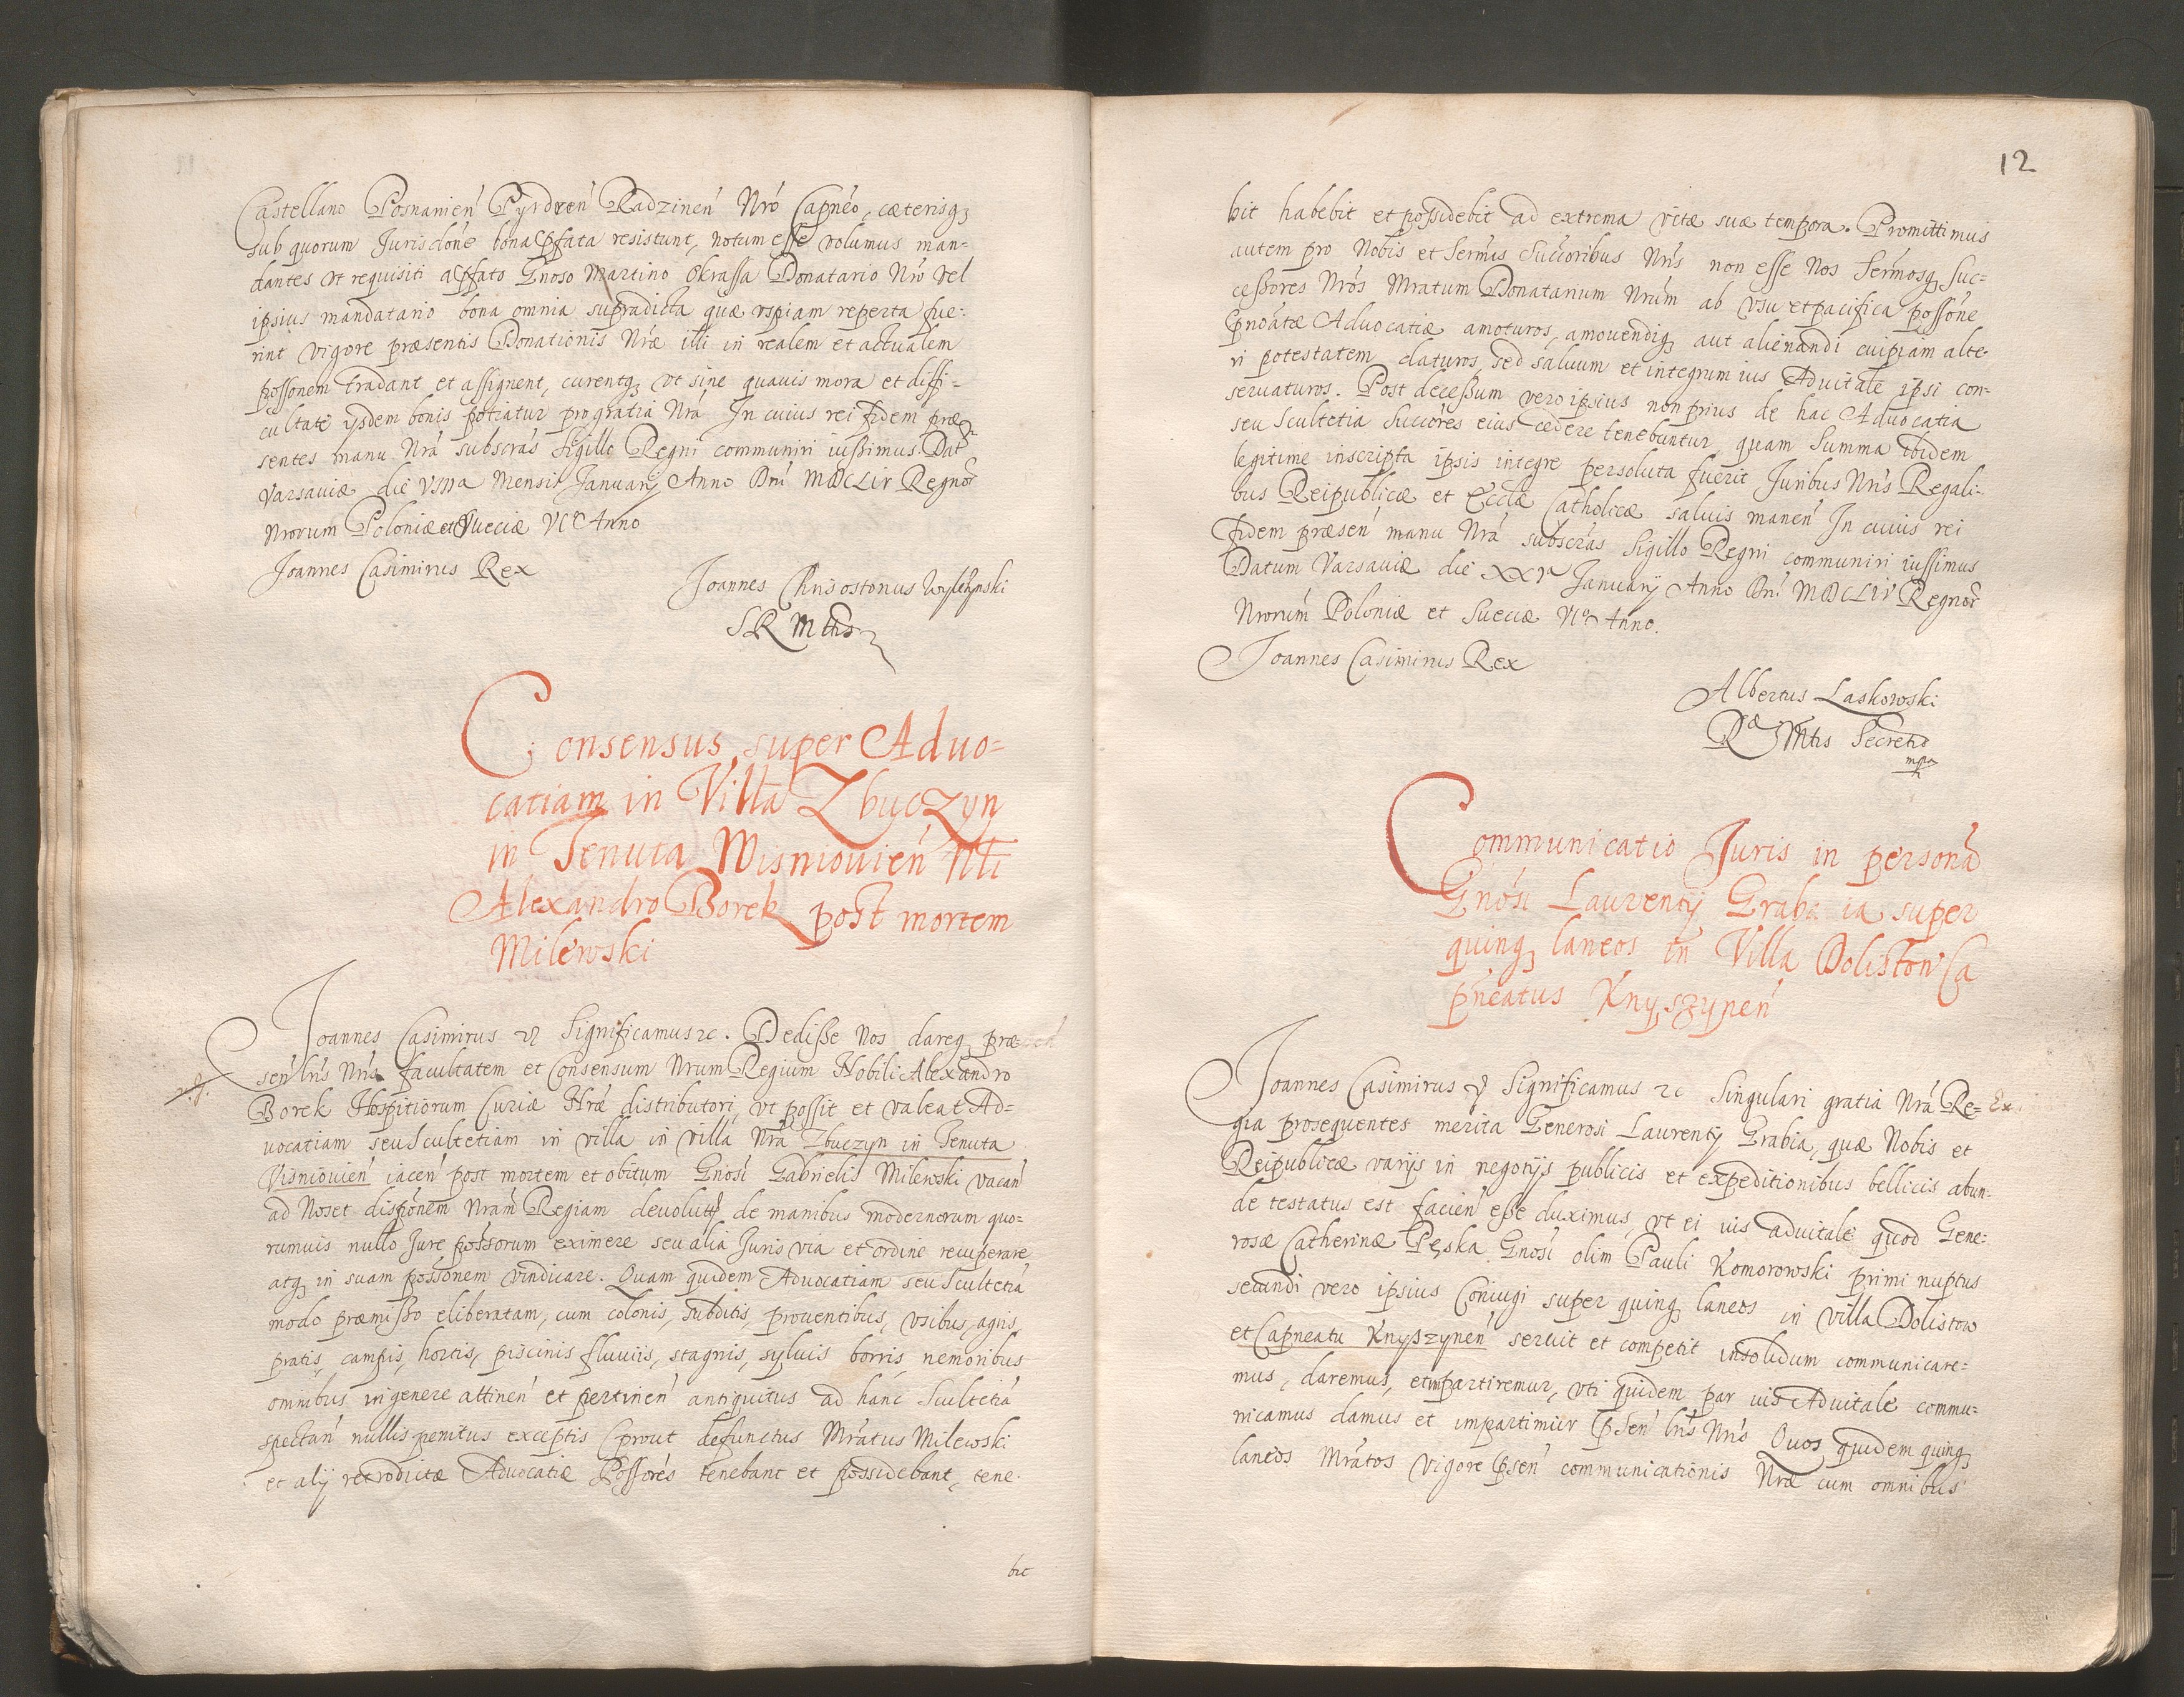 Castellano Posnanien Pysdren Radzinen Nro Capneo, cæterisq
sub quorum Jurisdone bona pfata resistunt, notum esse volumus man-
dantes ut requisiti a pfato Gnoso Martino Okrassa Donatario Nro vel
ipsius mandatario bona omnia supradicta quæ uspiam reperta fue:
rint vigore præsentis Donationis Nræ illi in realem et actualem
possonem tradant et assignent, curentq ut sine quavis mora et diffi-
cultate ijsdem bonis potiatur pro gratia Nra In cuius rei fidem præ
sentes manu Nra subscras Sigillo Regni communiri iussimus. Dat
Varsaviæ die Mensis Januarij Anno Dni MDCLIV Regnor
Nrorum Poloniæ et Sueciæ VIº Anno
Joannes Casimirus Rex
Joannes Chrisostonus
SR Mttis
Consensus super Advo=
catiam in Villa Zbuczyn
in Tenuta Wisniovien Nli
Alexandro Borek post mortem
Milewski
Joannes Casimirus Significamus &c. Dedisse Nos dareq præ
sen lris Nris facultatem et Consensum Nrum Regium Nobili Alexandro
Borek Hospitiorum Curiæ Nræ distributori, ut possit et valeat Ad=
vocatiam seu Scultetiam in villa in villa Nra Zbuczyn in Tenuta
Visniovien iacen post mortem et obitum Gnosi Gabrielis Milewski vacan
ad Nos et disponem Nram Regiam devolut de manibus modernorum quo=
rumvis nullo Jure possorum eximere seu alia Juris via et ordine recuperare
atq in suam possonem vindicare. Quam quidem Advocatiam seu Scultetia
modo præmisso eliberatam, cum colonis, subditis, proventibus, usibus, agris,
pratis, campis, hortis, piscinis fluviis, stagnis, sylvis borris, nemoribus
omnibus in genere attinen et pertinen antiquitus ad hanc Scultetia
spectan nullis penitus exceptis prout defunctus Mratus Milewski
et alij retrodictæ Advocatiæ Possores tenebant et possidebant, tene-
bit
12
bit habebit et possidebit ad extrema vitæ suæ tempora. Promittimus
autem pro Nobis et Sermis Succoribus Nris non esse Nos Sermosq Suc=
cessores Nros Mratum Donatarium Nrum ab usu et pacifica possone
pnoatæ Advocatiæ amoturos, amovendiq aut alienandi cuipiam alte-
ri potestatem daturos, sed salvum et integrum ius Advitale ipsi con-
servaturos. Post decessum vero ipsius non prius de hac Advocatia
seu Scultetia Succores eius cedere tenebuntur, quam Summa ibidem
legitime inscripta ipsis integre persoluta fuerit Juribus Nris Regali-
bus Reipublicæ et Ecclæ Catholicæ salvis manen In cuius rei
fidem præsen manu Nra subscras Sigillo Regni communiri iussimus
Datum Varsaviæ die Januarij Anno Dni MDCLIV Regnor
Nrorum Poloniæ et Sueciæ VIº Anno.
Joannes Casimirus Rex
Albertus Laskowski
Ræ Mtis Secretio
mpa
Communicatio Juris in persona
Gnosi Laurentij Grabia super
quinq laneos in Villa Doliston Ca
pneatus Knyszynen
Joannes Casimirus Significamus &c Singulari gratia Nra Re= Ex.
gia prosequentes merita Generosi Laurentij Grabia, quæ Nobis et
Reipublicæ varijs in negotijs publicis et expeditionibus bellicis abun-
de testatus est facien esse duximus, ut ei ius advitale quod Gene:
rosæ Catherinæ Pęska Gnosi olim Pauli Komorowski primi nuptus
secundi vero ipsius Coniugi super quinq laneos in villa Dolistow
et Capneatu Knyszynen servit et competit insolidum communicare=
mus, daremus, et impartiremur, uti quidem par ius Advitale commu=
nicamus damus et impartimur psen lris Nris Quos quidem quinq
laneos Mratos vigore psen communicationis Nræ cum omnibus